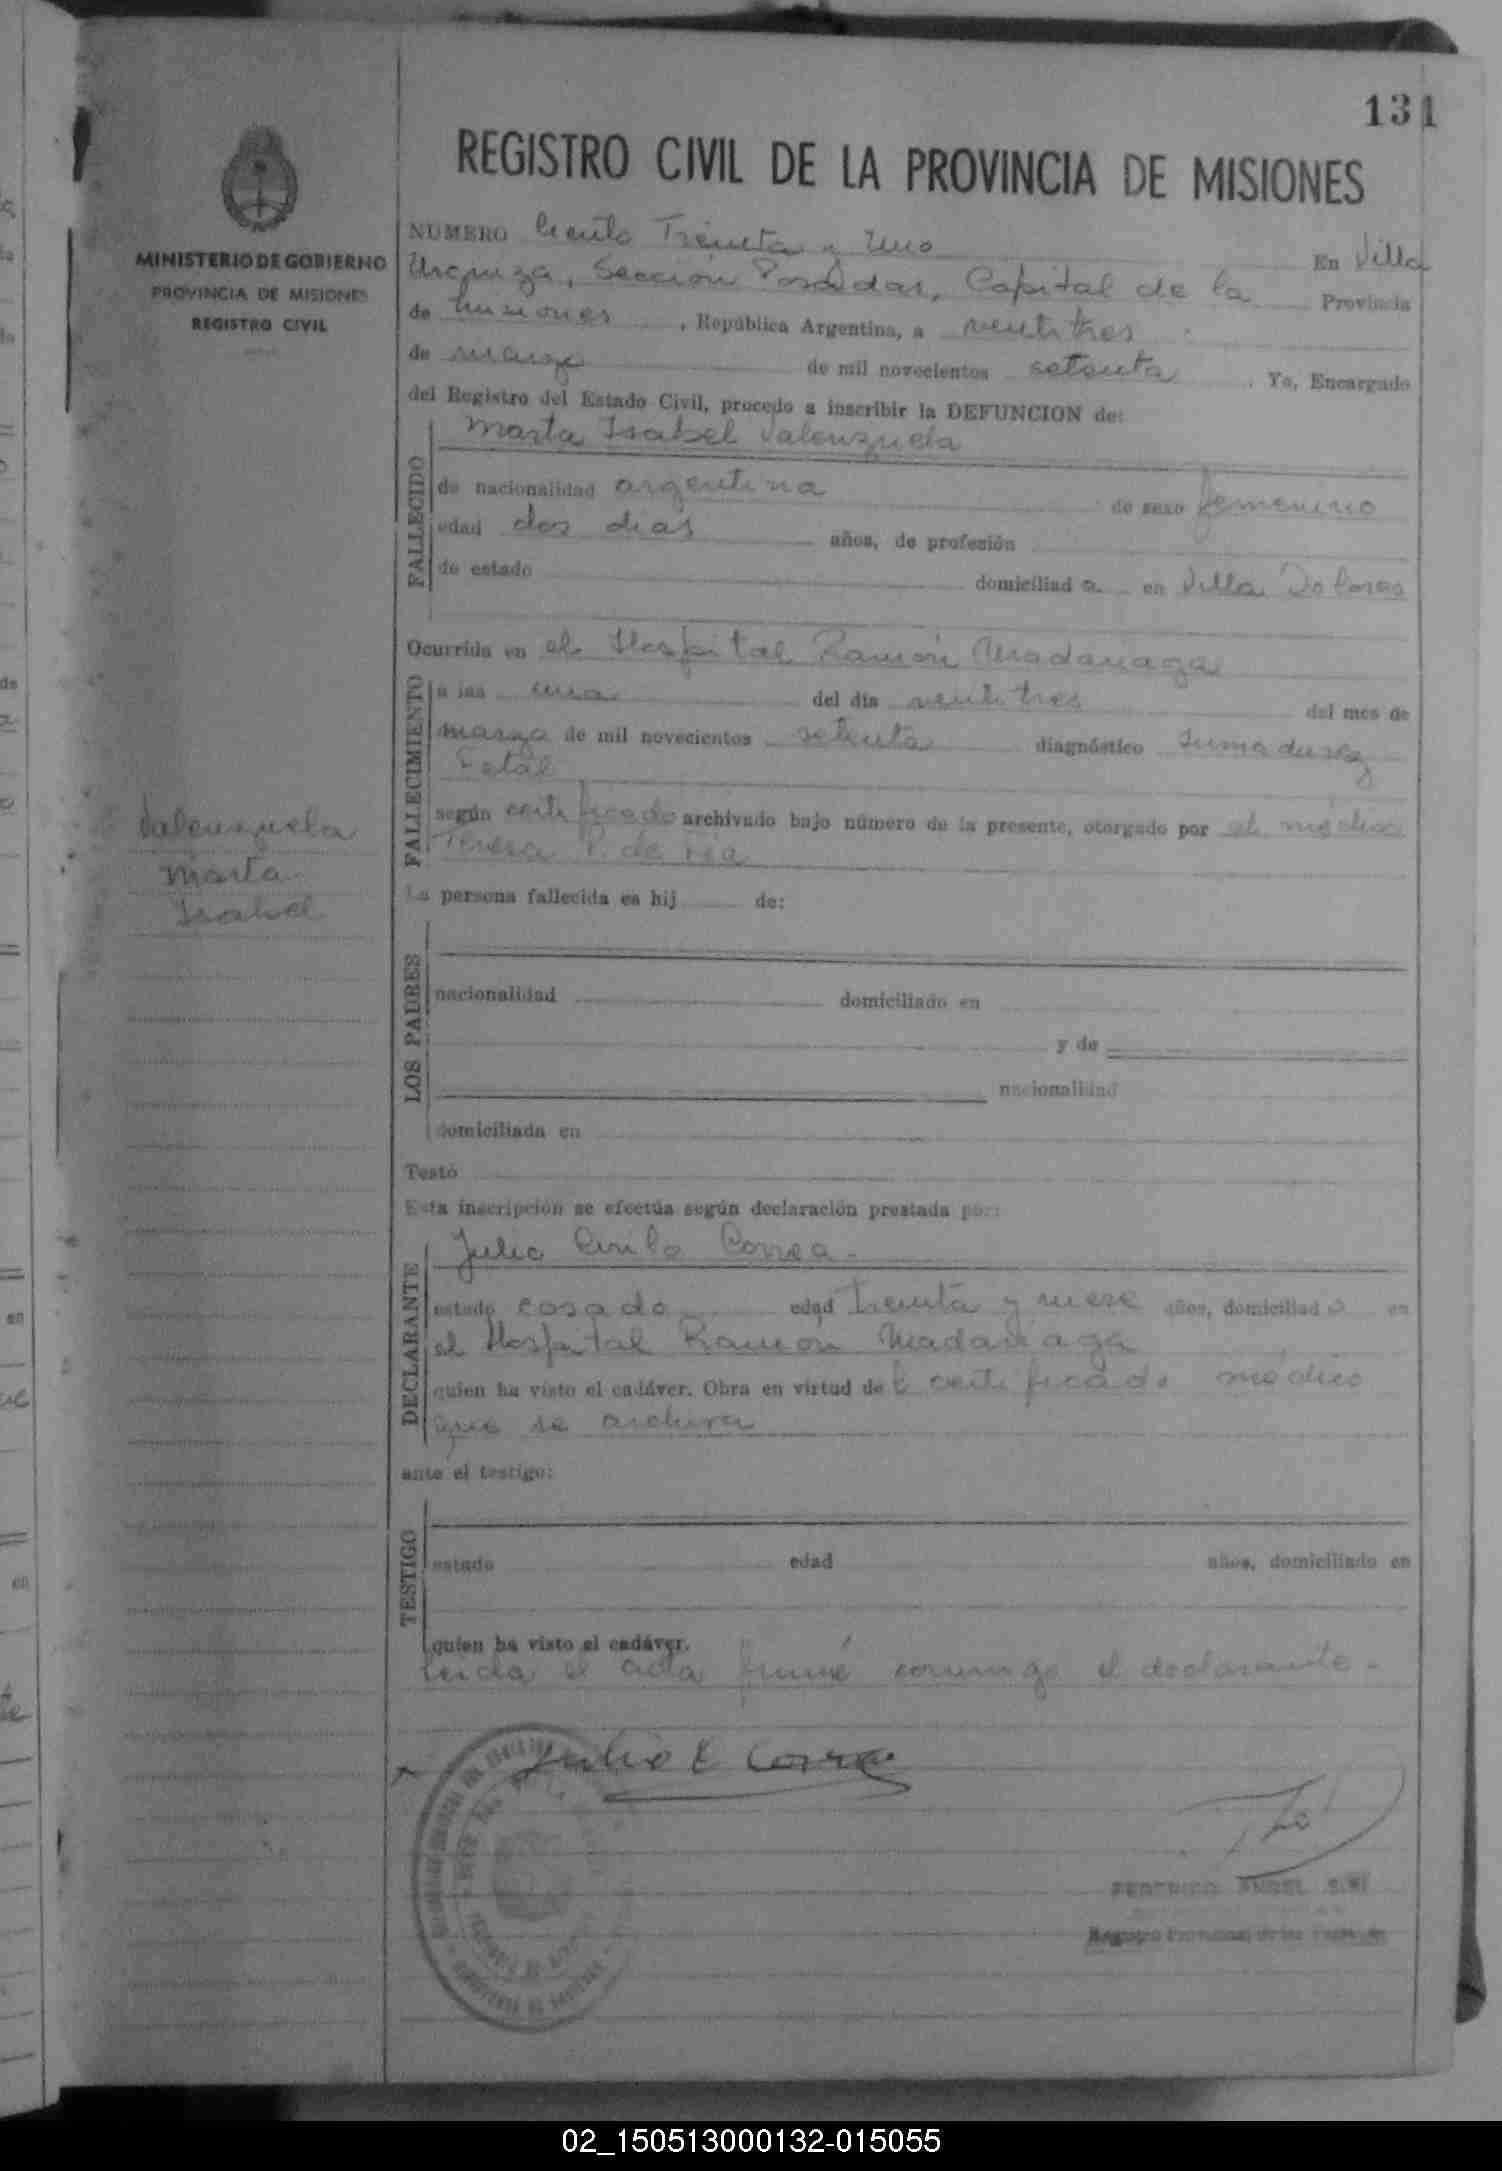 131
REGISTRO CIVIL DE LA PROVINCIA DE MISIONES
MINISTERIO DE GOBIERNO
PROVINCIA DE MISIONES
REGISTRO CIVIL
NUMERO Ciento Treinta y Uno En Villa
Urquiza, Sección Posadas, Capital de la Provincia
de Misiones, República Argentina, a veintitres
de marzo de mil novecientos setenta. Yo, Encargado
del Registro del Estado Civil, procedo a inscribir la DEFUNCION de:
Marta Isabel Valenzuela
FALLECIDO
de nacionalidad argentina de sexo femenino
edad dos dias años, de profesión
de estado domiciliad a en Villa Dolores
Ocurrida en el Hospital Ramón Madariaga
FALLECIMIENTO
a las una del día veintitres del mes de
marzo de mil novecientos setenta diagnóstico
Fetal
según certificado archivado bajo número de la presente, otorgado por el médico
Teresa de
Valenzuela
Marta
Isabel
La persona fallecida es hij de:
LOS PADRES
nacionalidad domiciliado en
y de
nacionalidad
domiciliada en
Testó
Esta inscripción se efectúa según declaración prestada por:
Julio Cirilo Correa.
DECLARANTE
estado casado edad treinta y nueve años, domiciliad o en
el Hospital Ramón Madariaga
quien ha visto el cadáver. Obra en virtud del certificado médico
que se archiva
ante el testigo:
TESTIGO
estado edad años, domiciliado en
quien ha visto el cadáver.
Leida el acta firmó conmigo el declarante.-
Julio C Correa
FEDERICO ANGEL
02_150513000132-015055